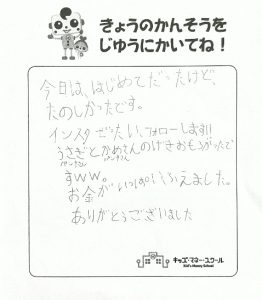 きょうのかんそうを
じゆうにかいてね！
今日は、はじめてだったけど、
たのしかったです。
インスタぜったい、フォローします!!
うさぎとかめさんのげきおもしろかったで
すww。
お金がいっぱいふえました。
ありがとうございました
キッズ・マネー・スクール
Kid's Money School